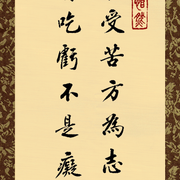 受苦方為志
吃虧不是癡